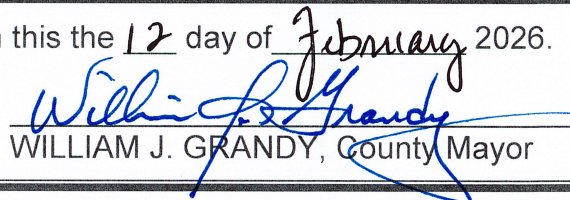 this the 12 day of February 2026.
William J. Grandy
WILLIAM J. GRANDY, County Mayor